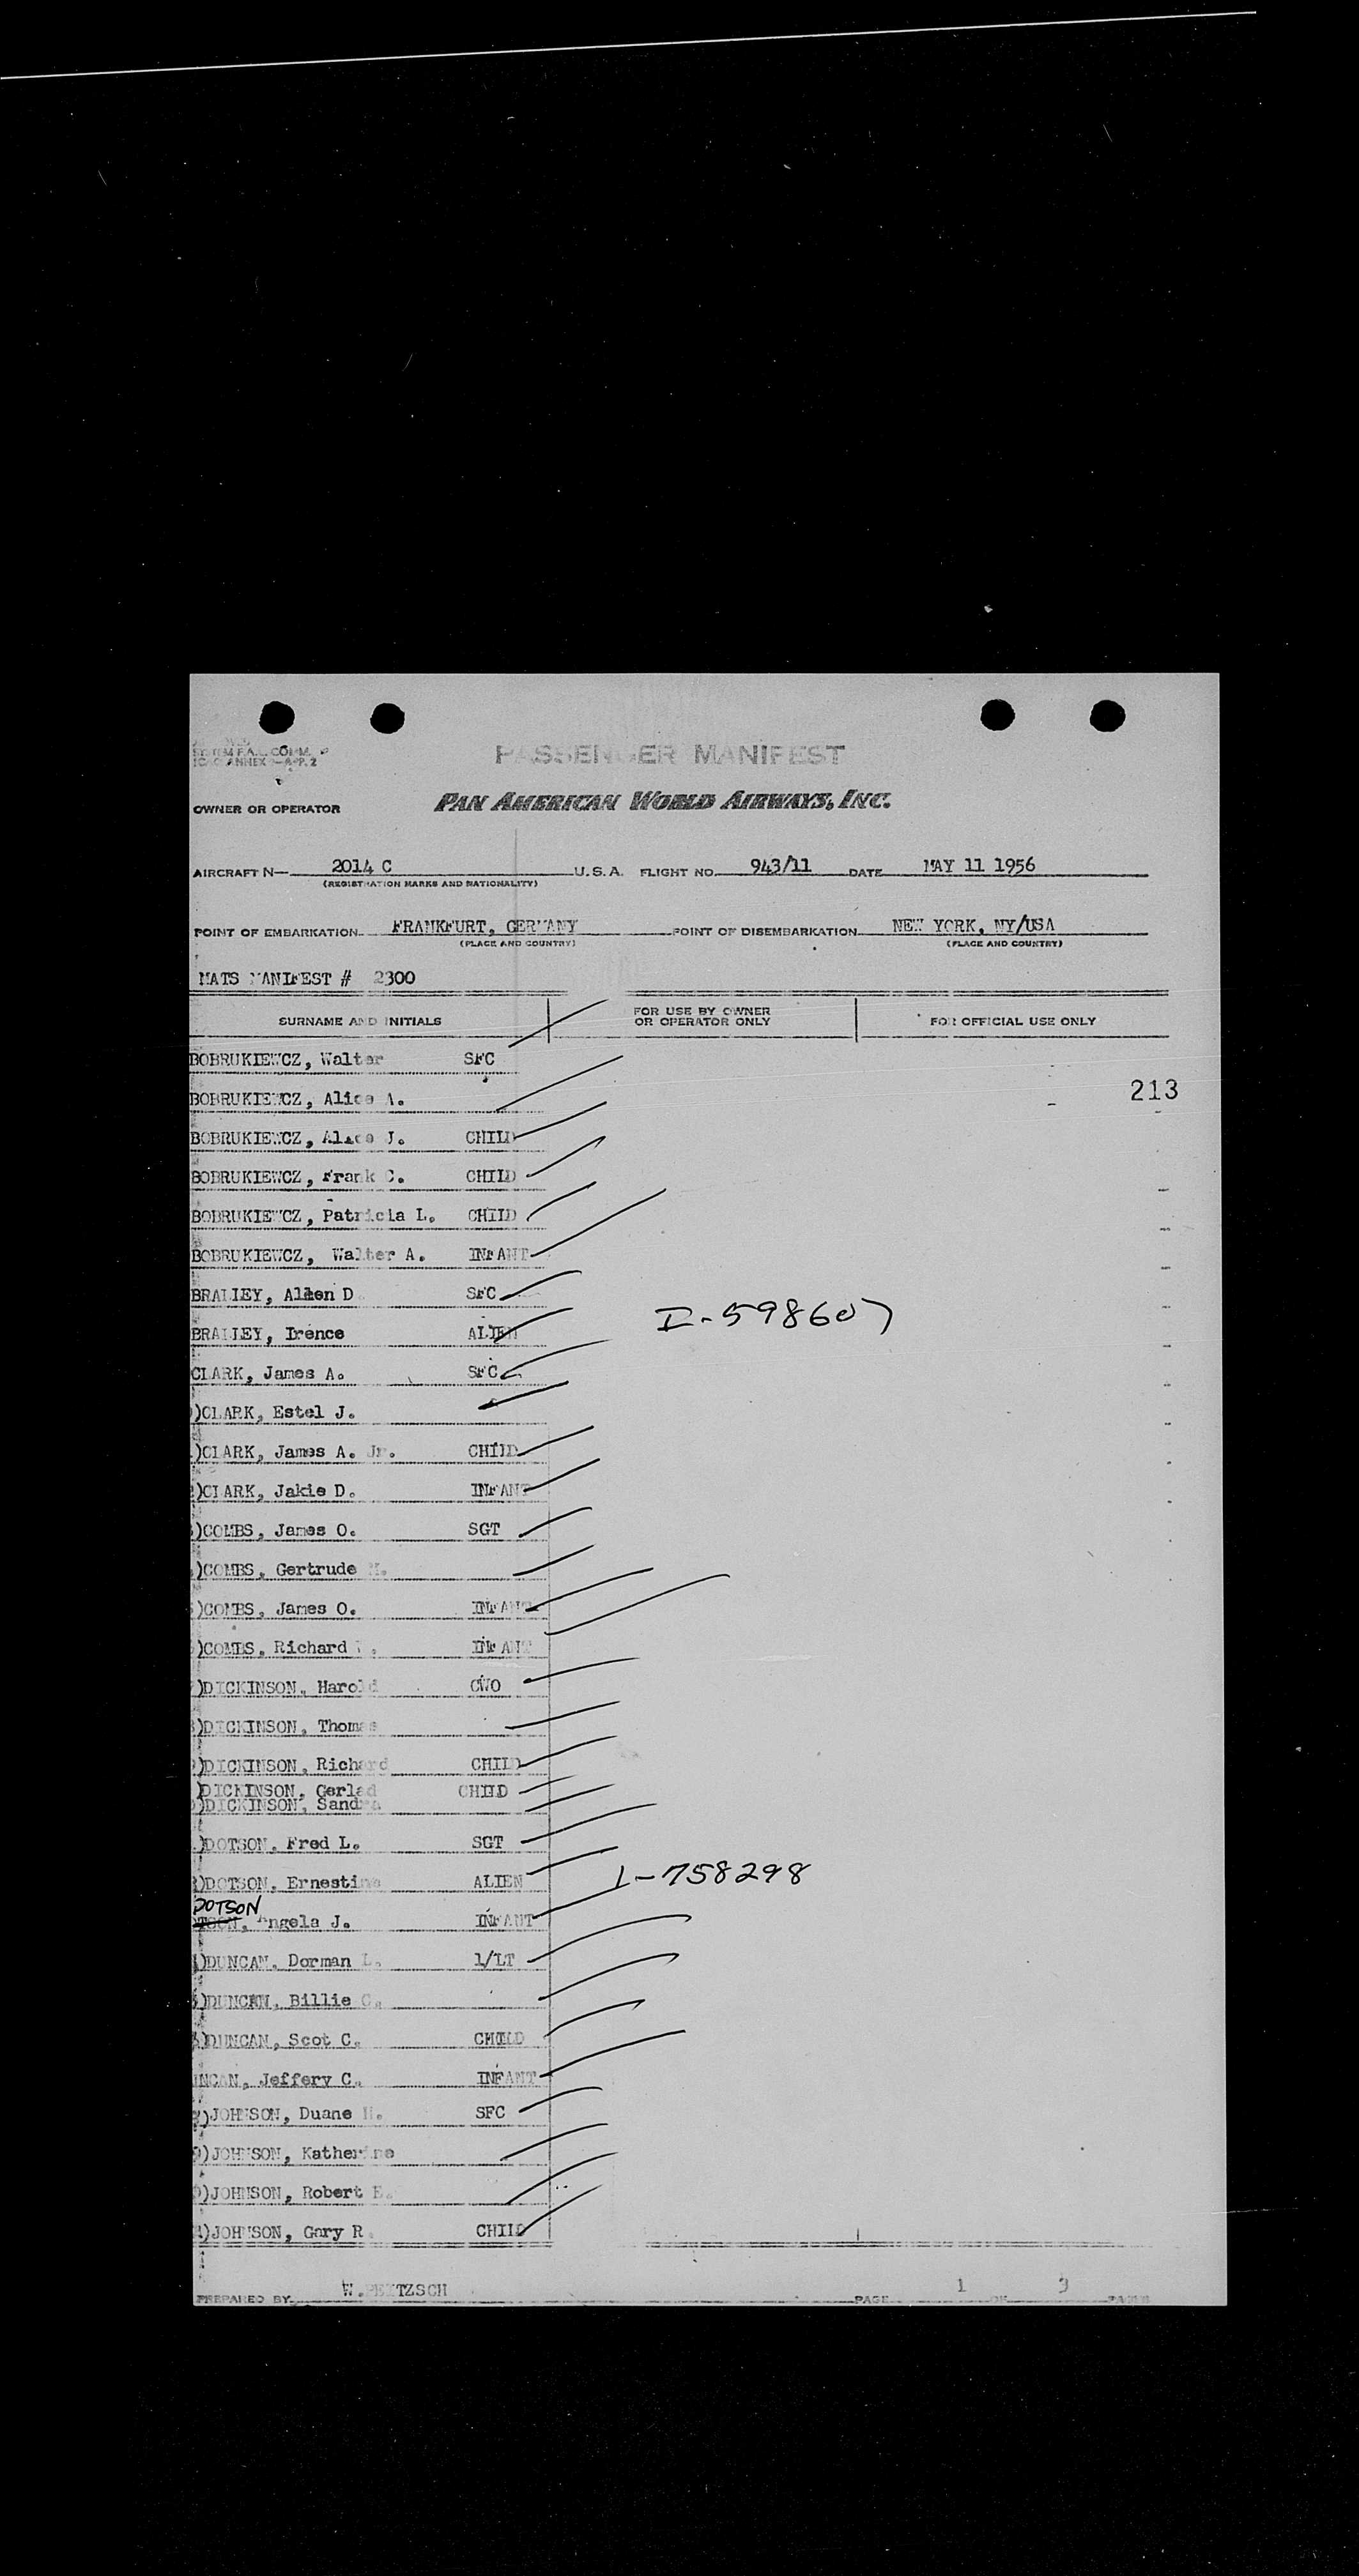 SYSTEM F.A.L. COMM.
ICAO ANNEX 9-APP. 2
PASSENGER MANIFEST
OWNER OR OPERATOR PAN AMERICAN WORLD AIRWAYS, INC.
AIRCRAFT N— 2014 C U.S.A. FLIGHT NO. 943/11 DATE MAY 11 1956
(REGISTRATION MARKS AND NATIONALITY)
POINT OF EMBARKATION FRANKFURT, GERMANY POINT OF DISEMBARKATION NEW YORK, NY/USA
(PLACE AND COUNTRY) (PLACE AND COUNTRY)
MATS MANIFEST # 2300
SURNAME AND INITIALS FOR USE BY OWNER OR OPERATOR ONLY FOR OFFICIAL USE ONLY
BOBRUKIEWCZ, Walter SFC
213
BOBRUKIEWCZ, Alice A.
BOBRUKIEWCZ, Alice J. CHILD
BOBRUKIEWCZ, Frank C. CHILD
BOBRUKIEWCZ, Patricia L. CHILD
BOBRUKIEWCZ, Walter A. INFANT
BRALLEY, Allen D SFC
BRALLEY, Irence ALIEN I-598607
CLARK, James A. SFC
)CLARK, Estel J.
)CLARK, James A. Jr. CHILD
)CLARK, Jakie D. INFANT
)COMBS, James O. SGT
)COMBS, Gertrude M.
)COMBS, James O. INFANT
)COMBS, Richard INFANT
)DICKINSON, Harold CWO
)DICKINSON, Thomas
)DICKINSON, Richard CHILD
)DICKINSON, Gerlad CHILD
)DICKINSON, Sandra
)DOTSON, Fred L. SGT
)DOTSON, Ernestine ALIEN I-758298
DOTSON
TSON, Angela J. INFANT
)DUNCAN, Dorman L. 1/LT
)DUNCAN, Billie C.
)DUNCAN, Scot C. CHILD
NCAN, Jeffery C. INFANT
)JOHNSON, Duane H. SFC
)JOHNSON, Katherine
)JOHNSON, Robert E.
)JOHNSON, Gary R. CHILD
PREPARED BY W. PEITZSCH PAGE 1 OF 3 PAGES